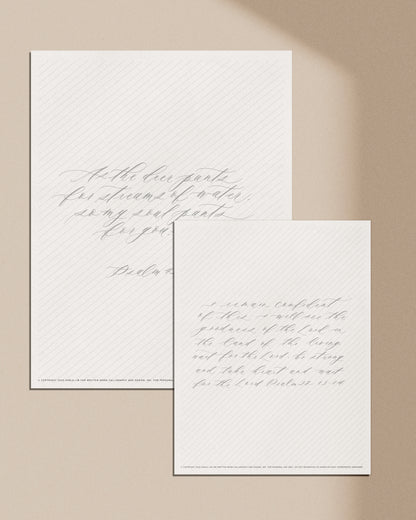 As the deer pants
for streams of water,
so my soul pants
for you
Psalm 4
I remain confident
of this I will see the
goodness of the Lord in
the land of the living
wait for the Lord be strong
and take heart and wait
for the Lord Psalm 27:13-14